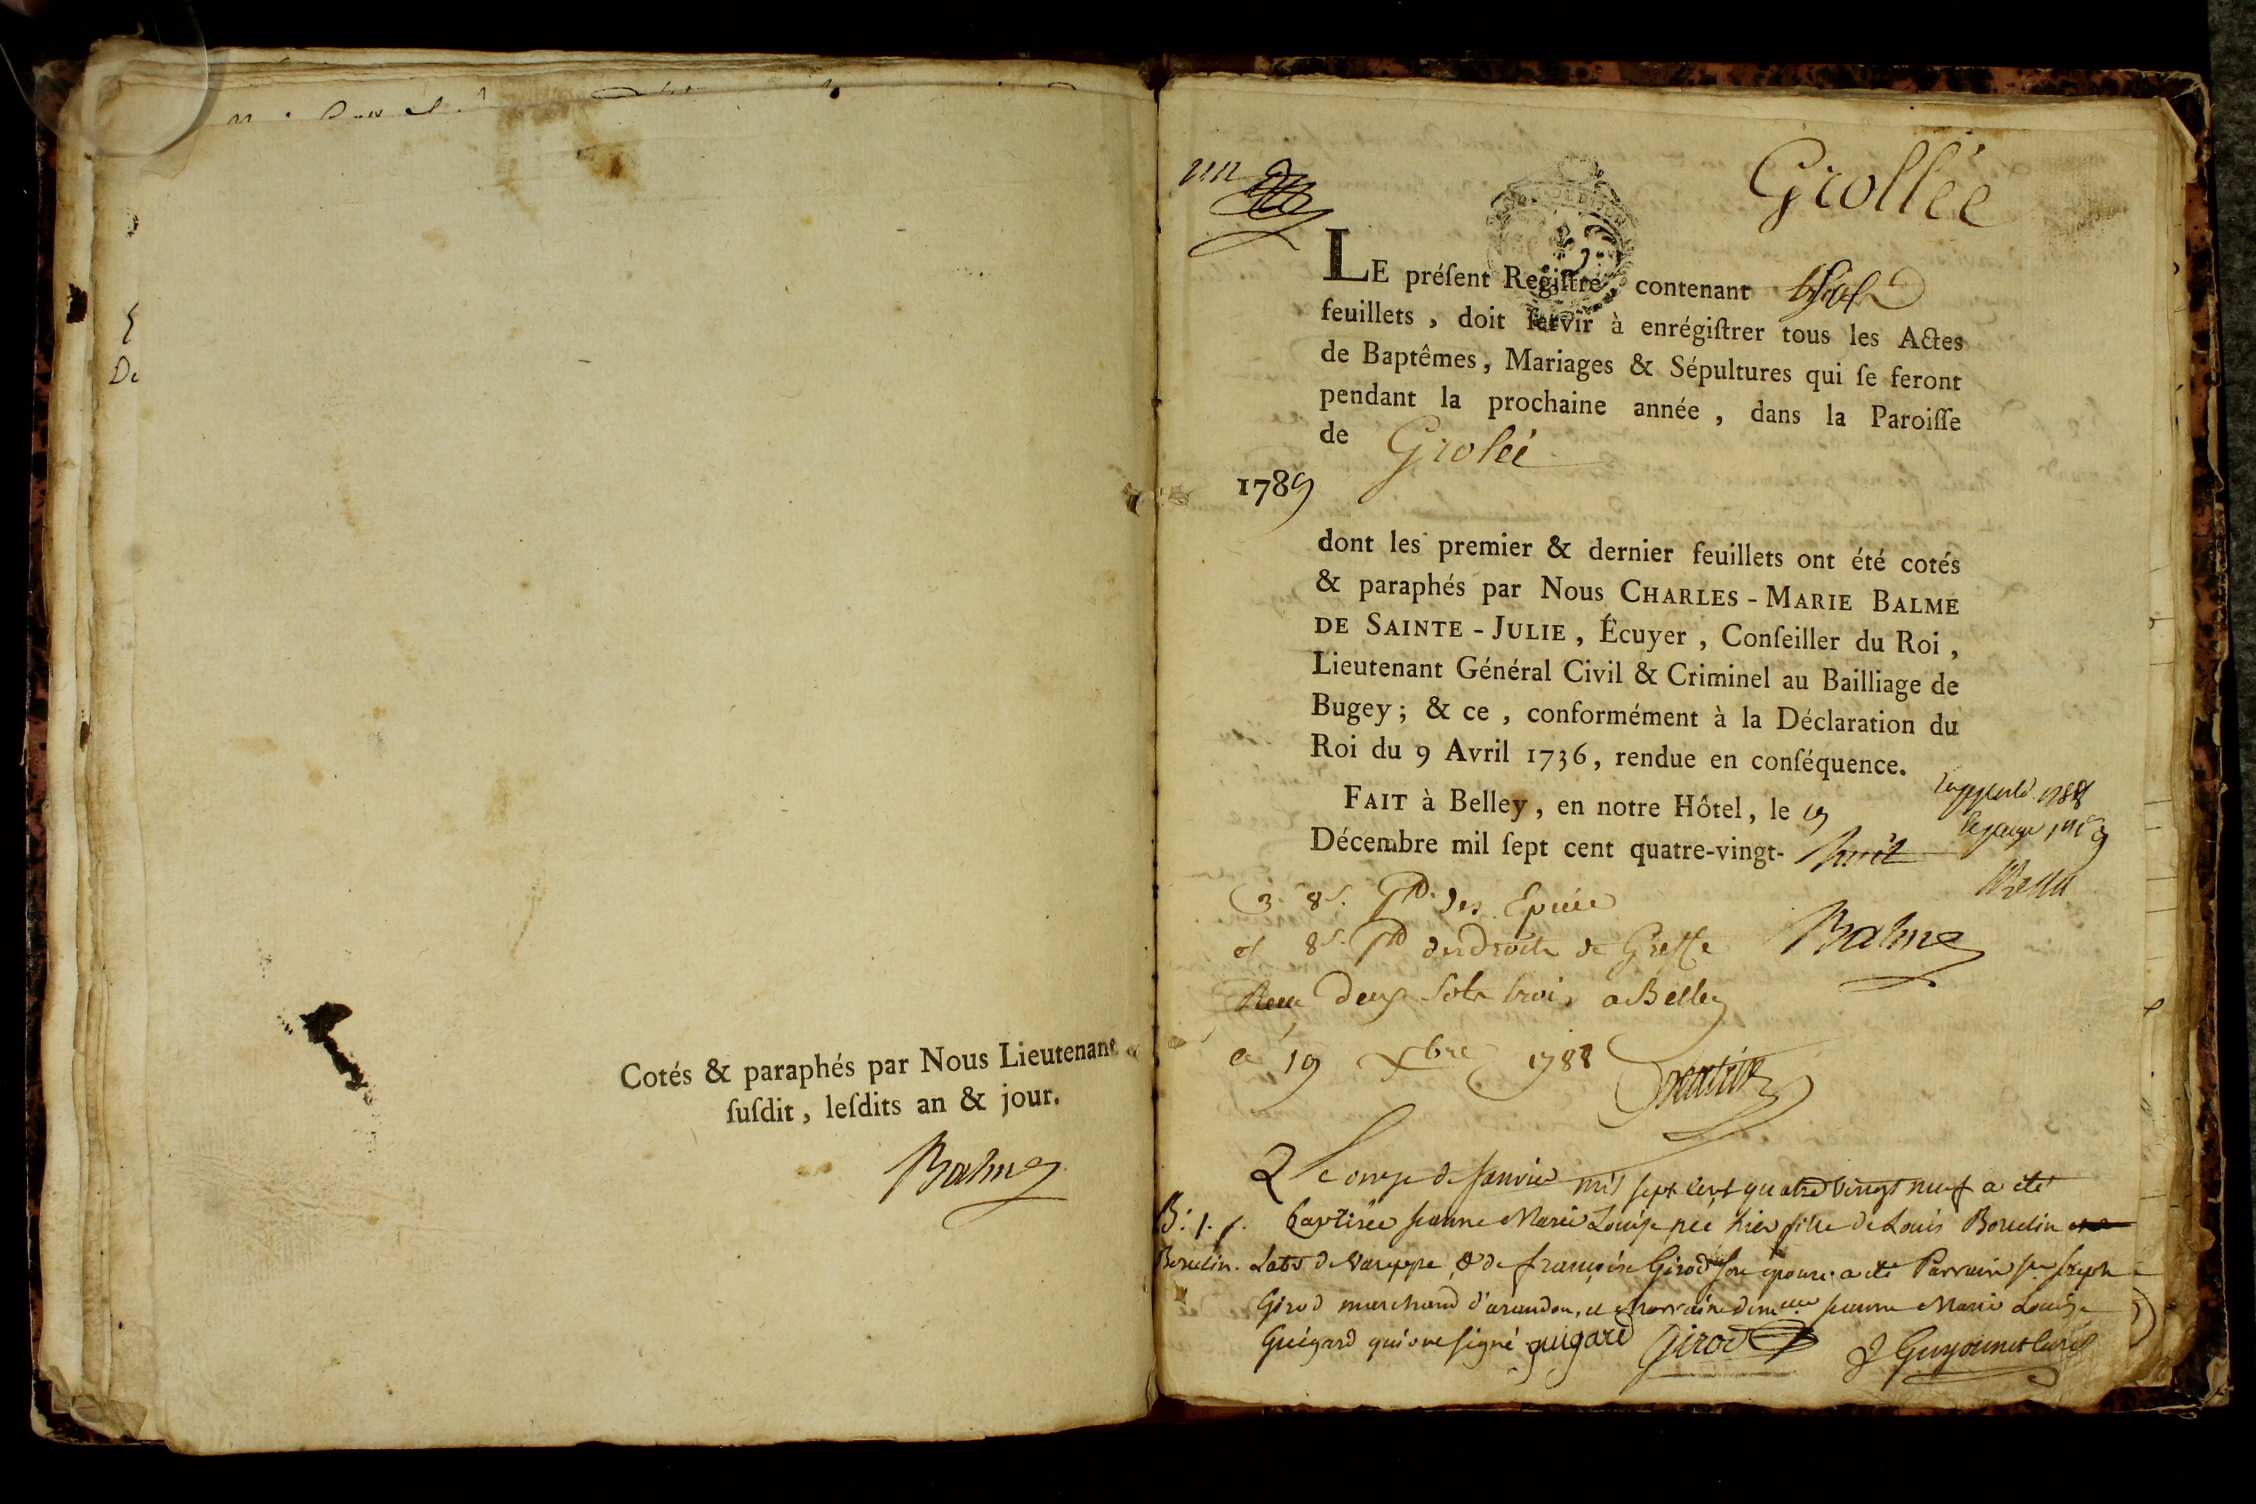 Cotés & paraphés par Nous Lieutenant
ſuſdit, leſdits an & jour.
Balme
un
Grollée
LE préſent Regiſtre, contenant
feuillets, doit ſervir à enrégiſtrer tous les Actes
de Baptêmes, Mariages & Sépultures qui ſe feront
pendant la prochaine année, dans la Paroiſſe
de Grolée
1789
dont les premier & dernier feuillets ont été cotés
& paraphés par Nous CHARLES-MARIE BALME
DE SAINTE-JULIE, Écuyer, Conſeiller du Roi,
Lieutenant Général Civil & Criminel au Bailliage de
Bugey; & ce, conformément à la Déclaration du
Roi du 9 Avril 1736, rendue en conſéquence.
FAIT à Belley, en notre Hôtel, le 19
Décembre mil ſept cent quatre-vingt-huit
1788
8s. des Epices
et 8s. des droits de Greffe
Balme
Deux sols trois a Belley
19 Xbre 1788
Le onze de Janvier mil sept cent quatre vingt neuf a été
B. 1. baptisée jeanne Marie Louise née hier fille de Louis Borudin
Borudin. de françoise Girod son epouse. a été Parrain sr joseph
Girod marchand d'arandon, et marraine jeanne Marie Louise
Guigard qui ont signé guigard Girod
J Guyonnet Curé